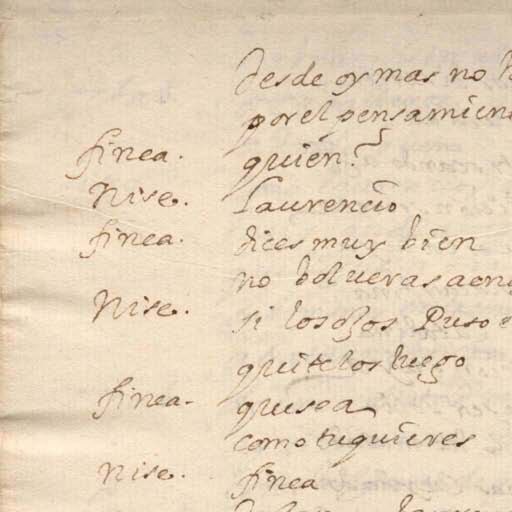 desde oy mas no
por el pensamien
finea. quien?
Nise. Laurencio
finea. dices muy bien
no bolueras a en
Nise. si los ojos Puso
quitelos luego
finea. que sea
como tu quieres
nise. finea